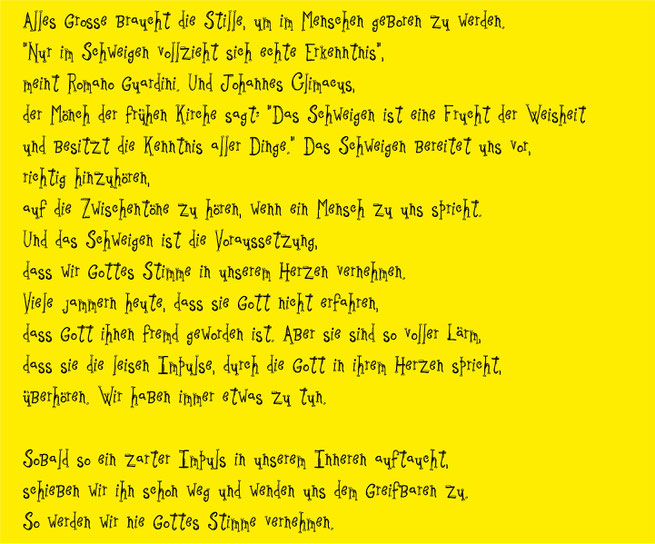 Alles Grosse braucht die Stille, um im Menschen geboren zu werden.
"Nur im Schweigen vollzieht sich echte Erkenntnis",
meint Romano Guardini. Und Johannes Climacus,
der Mönch der frühen Kirche sagt: "Das Schweigen ist eine Frucht der Weisheit
und besitzt die Kenntnis aller Dinge." Das Schweigen bereitet uns vor,
richtig hinzuhören,
auf die Zwischentöne zu hören, wenn ein Mensch zu uns spricht.
Und das Schweigen ist die Voraussetzung,
dass wir Gottes Stimme in unserem Herzen vernehmen.
Viele jammern heute, dass sie Gott nicht erfahren,
dass Gott ihnen fremd geworden ist. Aber sie sind so voller Lärm,
dass sie die leisen Impulse, durch die Gott in ihrem Herzen spricht,
überhören. Wir haben immer etwas zu tun.
Sobald so ein zarter Impuls in unserem Inneren auftaucht,
schieben wir ihn schon weg und wenden uns dem Greifbaren zu.
So werden wir nie Gottes Stimme vernehmen.